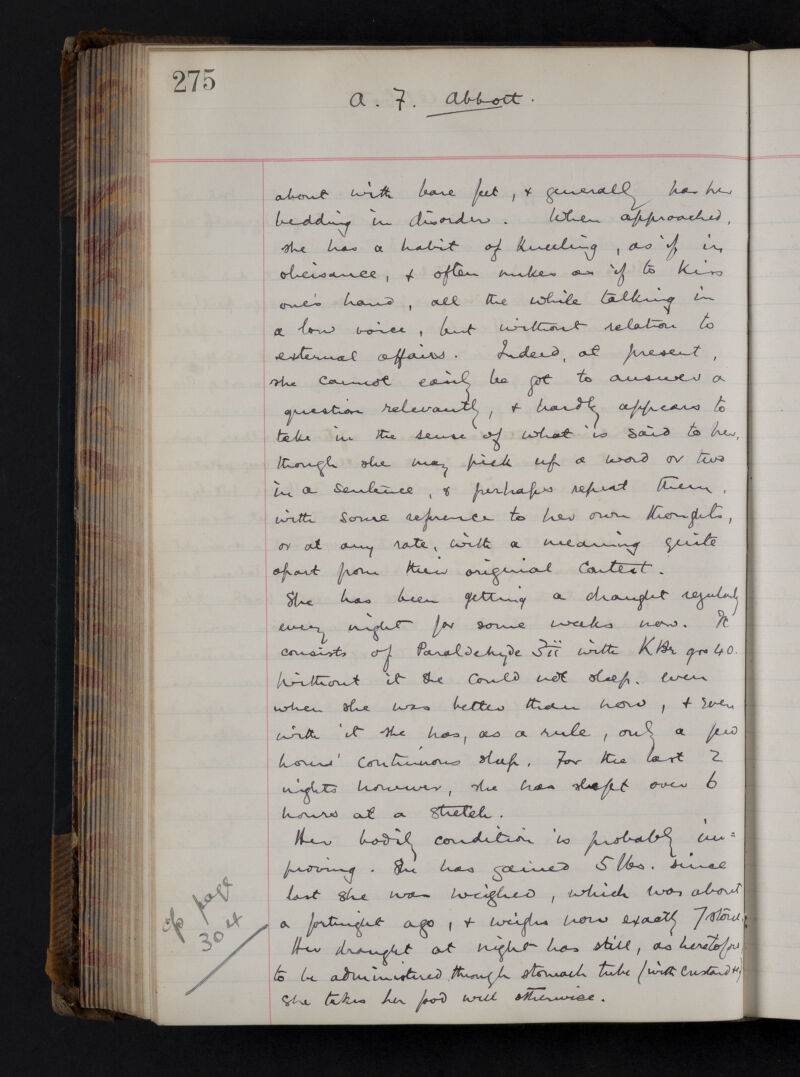 275
A. F. Abbott.
about with bare feet, & generally has her
bedding in disorder. When approached,
she has a habit of kneeling, as if in
obeisance, & often makes as if to kiss
one's hand, all the while talking in
a low voice, but without relation to
external affairs. Indeed, at present,
she cannot easily be got to answer a
question relevantly, & hardly appears to
take in the sense of what is said to her,
though she may pick up a word or two
in a sentence, & perhaps repeat them,
with some reference to her own thoughts,
or at any rate, with a meaning quite
apart from their original context.
She has been getting a draught regularly
every night for some weeks now. It
consists of Paraldehyde ʒii with KBr grs 40.
Without it she could not sleep, even
when she was better than now, & even
with it she has, as a rule, only a few
hours' continuous sleep. For the last 2
nights however, she has slept over 6
hours at a stretch.
Her bodily condition is probably im=
proving. She has gained 5 lbs. since
last she was weighed, which was about
a fortnight ago, & weighs now exactly 7 stone.
Her draught at night has still, as heretofore
to be administered through stomach tube (with custard &c)
She takes her food well otherwise.
c/o page
304